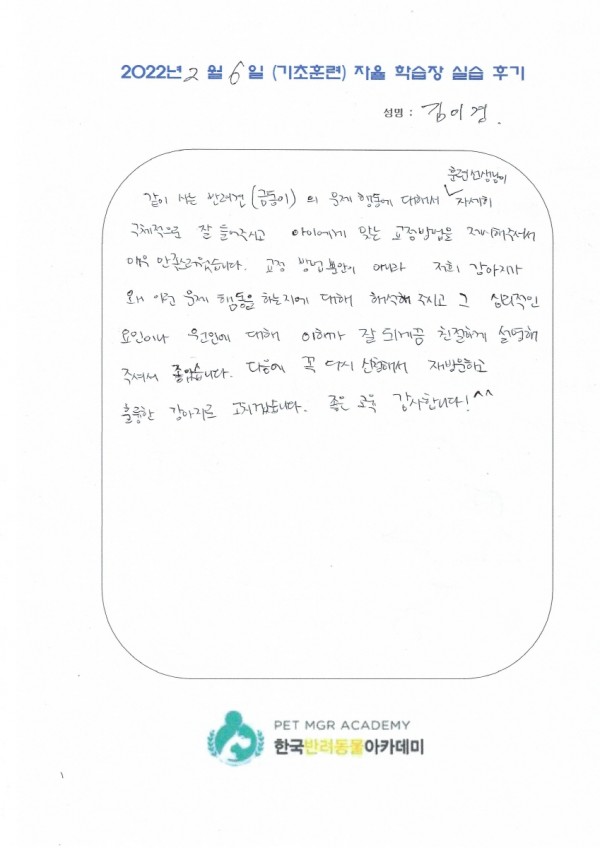 2022년 2월 6일 (기초훈련) 자율 학습장 실습 후기
성명 : 김이경
훈련선생님이
같이 사는 반려견 (금동이) 의 문제 행동에 대해서 자세히
구체적으로 잘 들어주시고 아이에게 맞는 교정방법을 제시해주셔서
매우 만족스러웠습니다. 교정 방법뿐만이 아니라 저희 강아지가
왜 이런 문제 행동을 하는지에 대해 해석해 주시고 그 심리적인
요인이나 원인에 대해 이해가 잘 되게끔 친절하게 설명해
주셔서 좋았습니다. 다음에 꼭 다시 신청해서 재방문하고
훌륭한 강아지로 고치겠습니다. 좋은 교육 감사합니다! ^^
PET MGR ACADEMY
한국반려동물아카데미